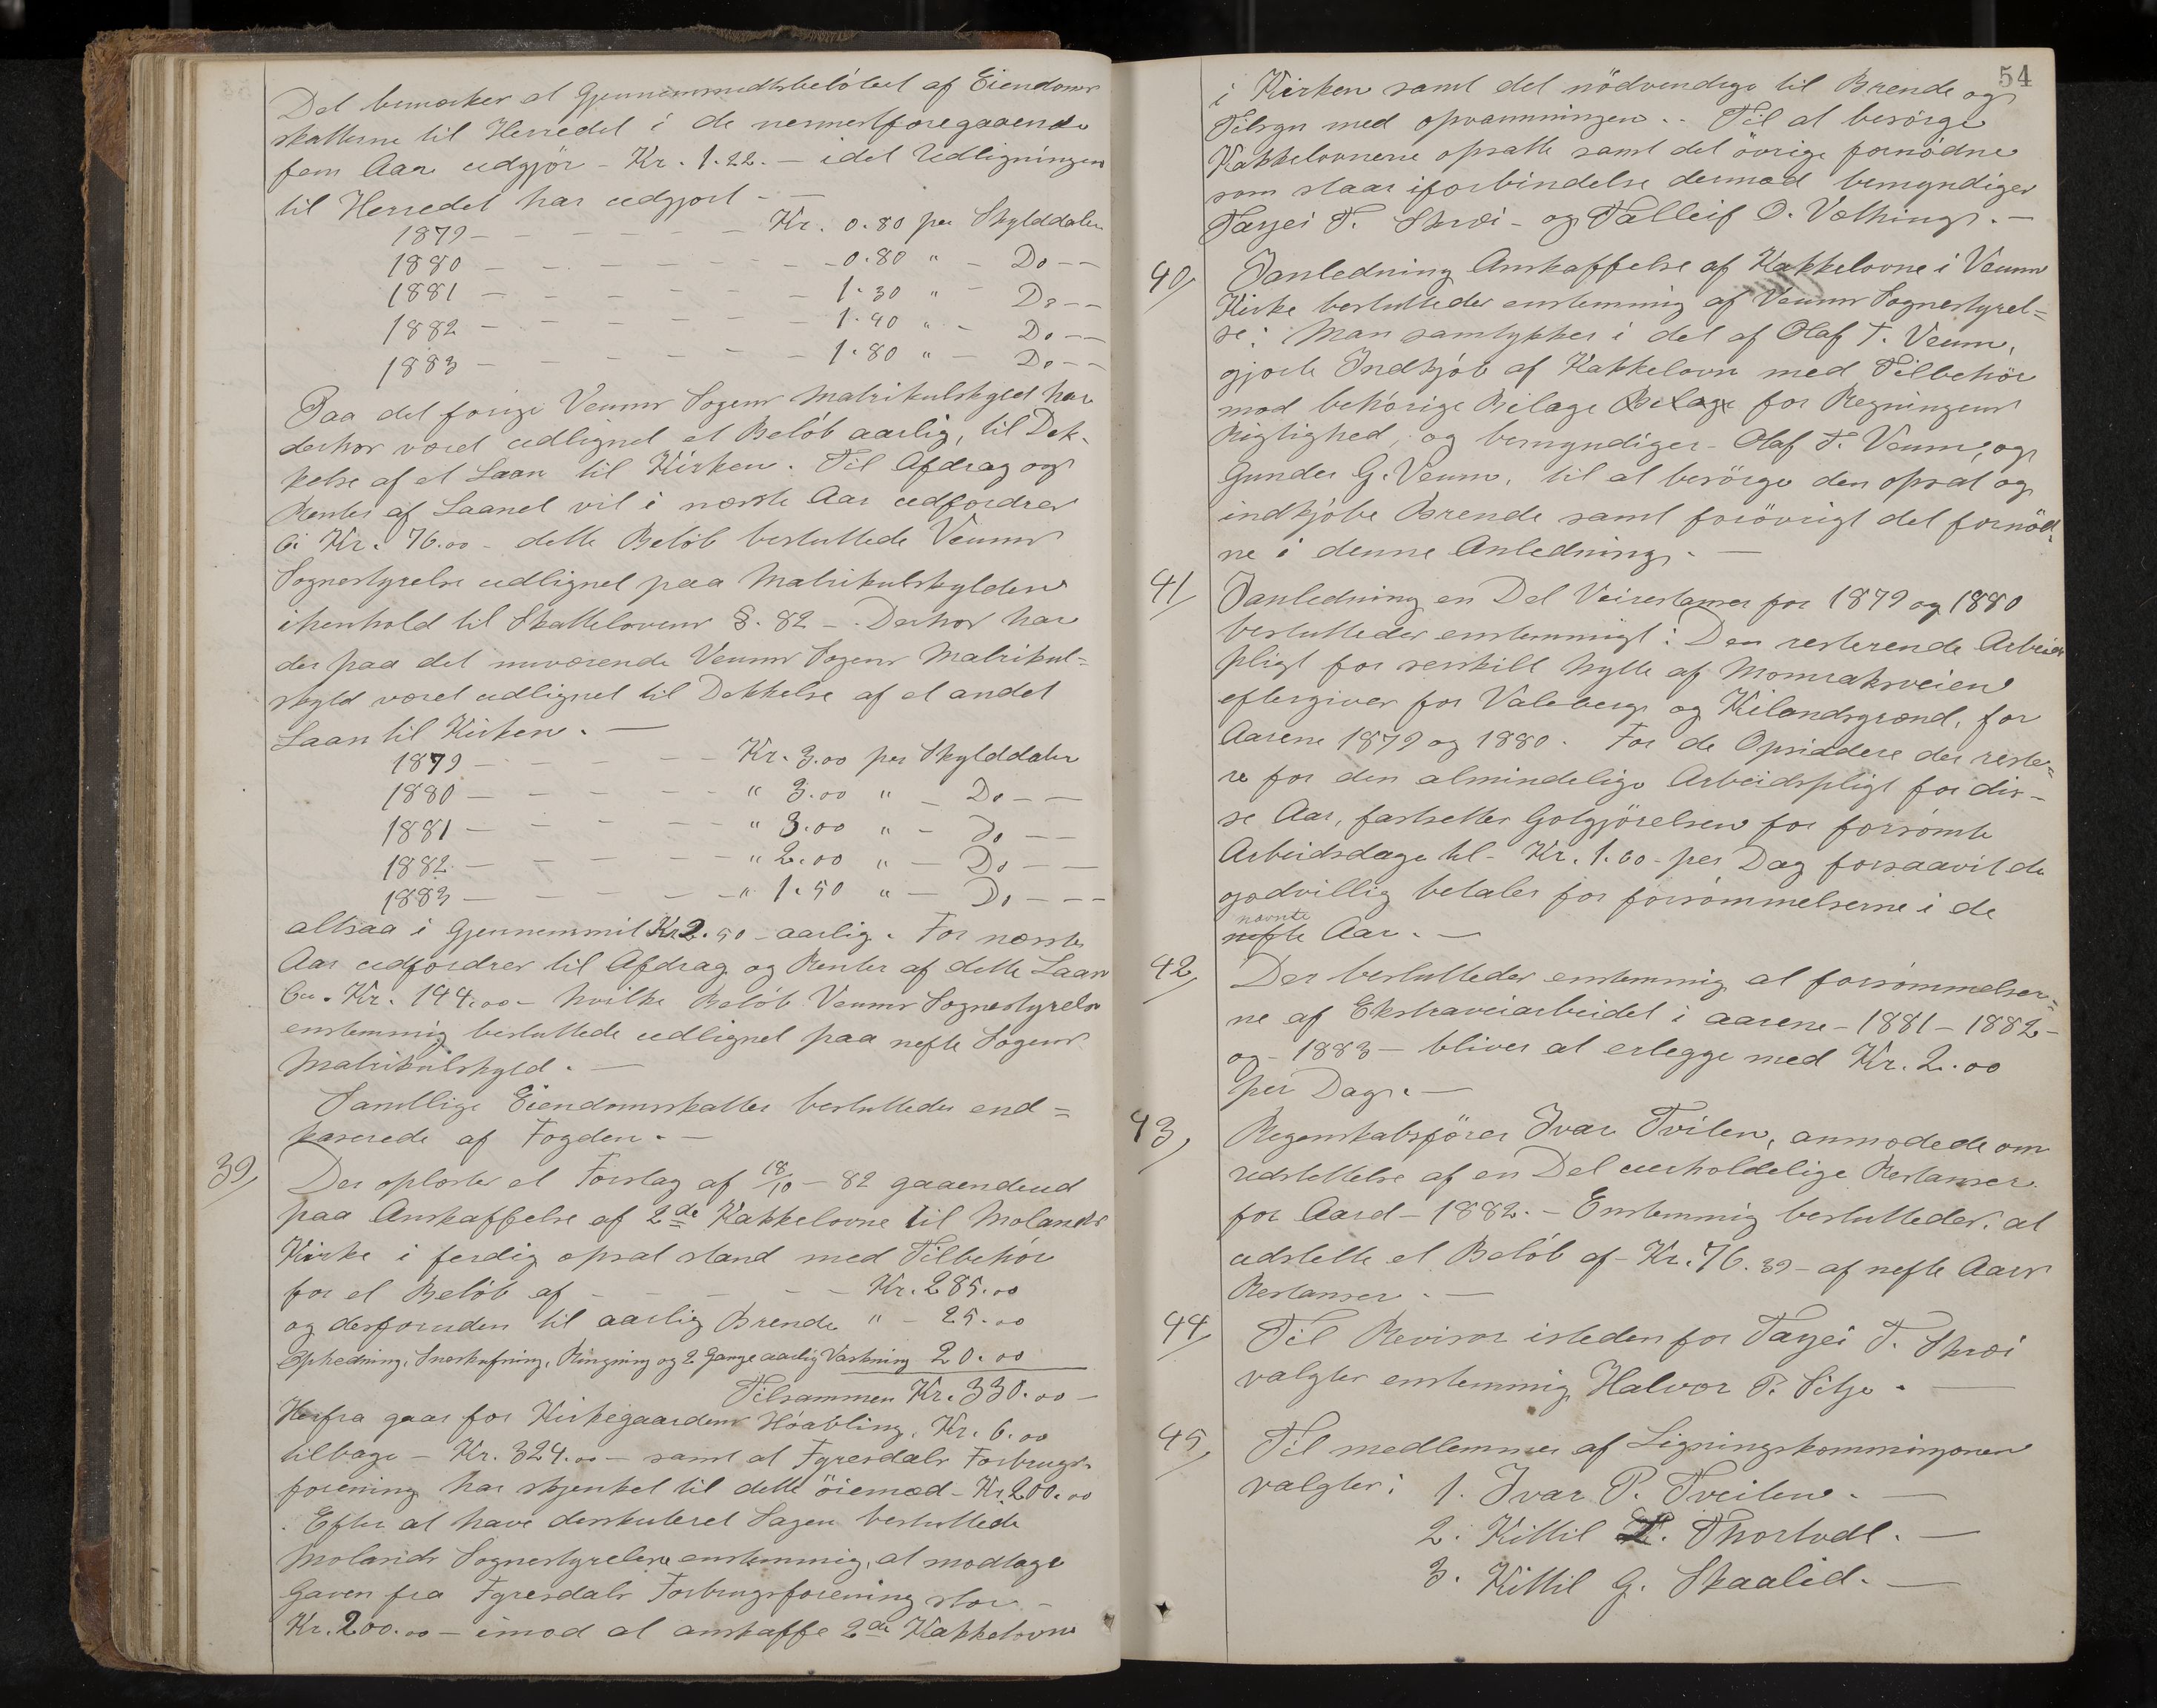 Det bemærkes at Gjennemsnidtsbeløbet af Eiendoms
skatterne til Herredet i de nermestforegaaende
fem Aar udgjør - Kr. 1.22. - idet Udligningen
til Herredet har udgjort -
1879 - - - - - - Kr. 0.80 per Skylddaler
1880 - - - - - - 0.80 " - Do - -
1881 - - - - - - 1.30 " - Do - -
1882 - - - - - - 1.40 " - Do - -
1883 - - - - - - 1.80 " - Do - -
Paa det forige Veums Sogns Matrikulskyld har
derhos været udlignet et Beløb aarlig, til Dek-
kelse af et Laan til Kirken. Til Afdrag og
Renter af Laanet vil i næste Aar udfordres
Ci Kr. 76.00 - dette Beløb besluttede Veums
Sognestyrelse udlignet paa Matrikulskylden
ihenhold til Skattelovens §. 82 - Derhos har
der paa det nuværende Veums Sogns Matrikul=
skyld været udlignet til Dekkelse af et andet
Laan til Kirken. -
1879 - - - - - Kr. 3.00 per Skylddaler
1880 - - - - - " 3.00 " - Do - -
1881 - - - - - " 3.00 " - Do - -
1882 - - - - - " 2.00 " - Do - -
1883 - - - - - " 1.50 " - Do - - -
altsaa i Gjennemsnit Kr 2.50 - aarlig. For næste
Aar udfordres til Afdrag og Renter af dette Laan
Kr. 144.00 - hvilke Beløb Veums Sognestyrelse
enstemmig besluttede udlignet paa nefte Sogns
Matrikulskyld. -
Samtlige Eiendomsskatter besluttedes end=
kaserede af Fogden. -
39, Der oplæstes et Forslag af 18/10 - 82 gaaendeud
paa Anskaffelse af 2de Kakkelovne til Molands
Kirke i ferdig opsat stand med Tilbehør
for et Beløb af - - - - Kr. 285.00
og desforuden til aarlig Brende " - 25.00
Ophedning, Sneskufning, Ringning og 2 Gange aarlig Vaskning 20.00
Tilsammen Kr. 330.00 -
Herfra gaar for Kirkegaardens Høavling, Kr. 6.00
tilbage - Kr. 324.00 - samt at Fyresdals Forbrugs-
forening har skjenket til dette øiemæd - Kr. 200.00
. Efter at have derskuteret Sagen besluttede
Molands Sognestyrelse enstemmig, at modtage
Gaven fra Fyresdals Forbrugsforening stor -
Kr. 200.00 - imod at anskaffe 2de Kakkelovne
54
i Kirken samt det nödvendige til Brende og
Tilsyn med opvarmningen.. Til at besörge
Kakkelovnene opsatte samt det övrige fornödne
som staar iforbindelse dermed bemyndiges
Tarjei T. Skræi - og Talleif O. Vælhings. -
40, Ianledning Anskaffelse af Kakkelovne i Veums
Kirke besluttedes enstemmig af Veums Sognestyrel=
se: Man samtykker i det af Olaf T. Veum,
gjorte Indkjøb af Kakkelovn med Tilbehör
mod behørige Bilage Bilage for Regningens
Rigtighed, og bemyndiges - Olaf T. Veum, og
Gunder G. Veum, til at besörge den opsat og
indkjøbe Brende samt forövrigt det fornöd-
ne i denne Anledning. -
41, Ianledning en Del Veirestanser for 1879 og 1880
besluttedes enstemmigt: Den resterende Arbeids
pligt for serskilt Nytte af Momraksveien
eftergives for Valeberg og Kilandsgrænd, for
Aarene 1879 og 1880. For de Opsiddere der reste=
re for den almindelige Arbeidspligt for dis-
se Aar, fastsettes Gotgjörelsen for forsömte
Arbeidsdage til - Kr. 1.60 - per Dag forsaavit de
godvillig betaler for forsömmelserne i de
nævnte
nefte Aar. -
42, Der besluttedes enstemmig at forsömmelser=
ne af Ekstraveiarbeidet i aarene - 1881 - 1882 -
og - 1883 - bliver at erlegge med Kr. 2.00
per Dag. -
43, Regenskabsfører Ivar Tvilen, anmodede om
udslettelse af en Del uerholdelige Restanser
for Aard - 1882. - Enstemmig besluttedes: at
udslette et Beløb af - Kr. 76.39 - af nefte Aars
Restanser. -
44, Til Revisor isteden for Tarjei T. Skræi
valgtes enstemmig, Halvor P. Silje. -
45, Til medlemmer af Ligningskommisjonen
valgtes: 1. Ivar P. Tveiten. -
2. Kittil P. Thortvedt. -
3. Kittil G. Skaalid. -